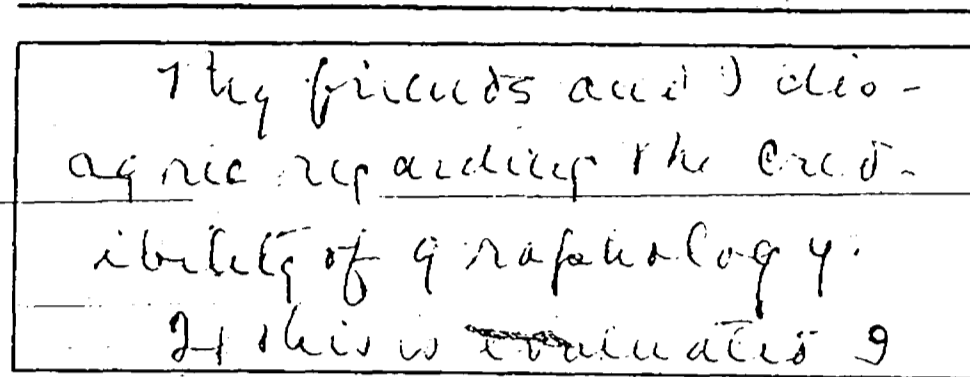 My friends and I dis-
agree regarding the cred-
ibility of graphology.
If this is evaluated I